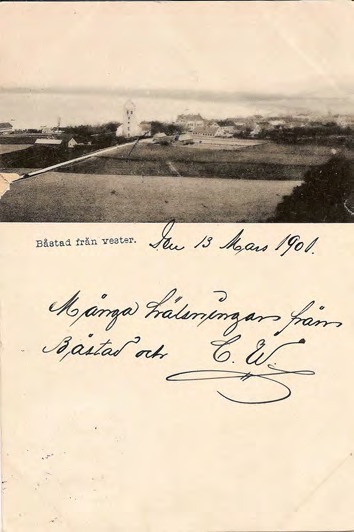 Båstad från vester. Den 13 Mars 1901.
Många hälsningar från
Båstad och C. W.